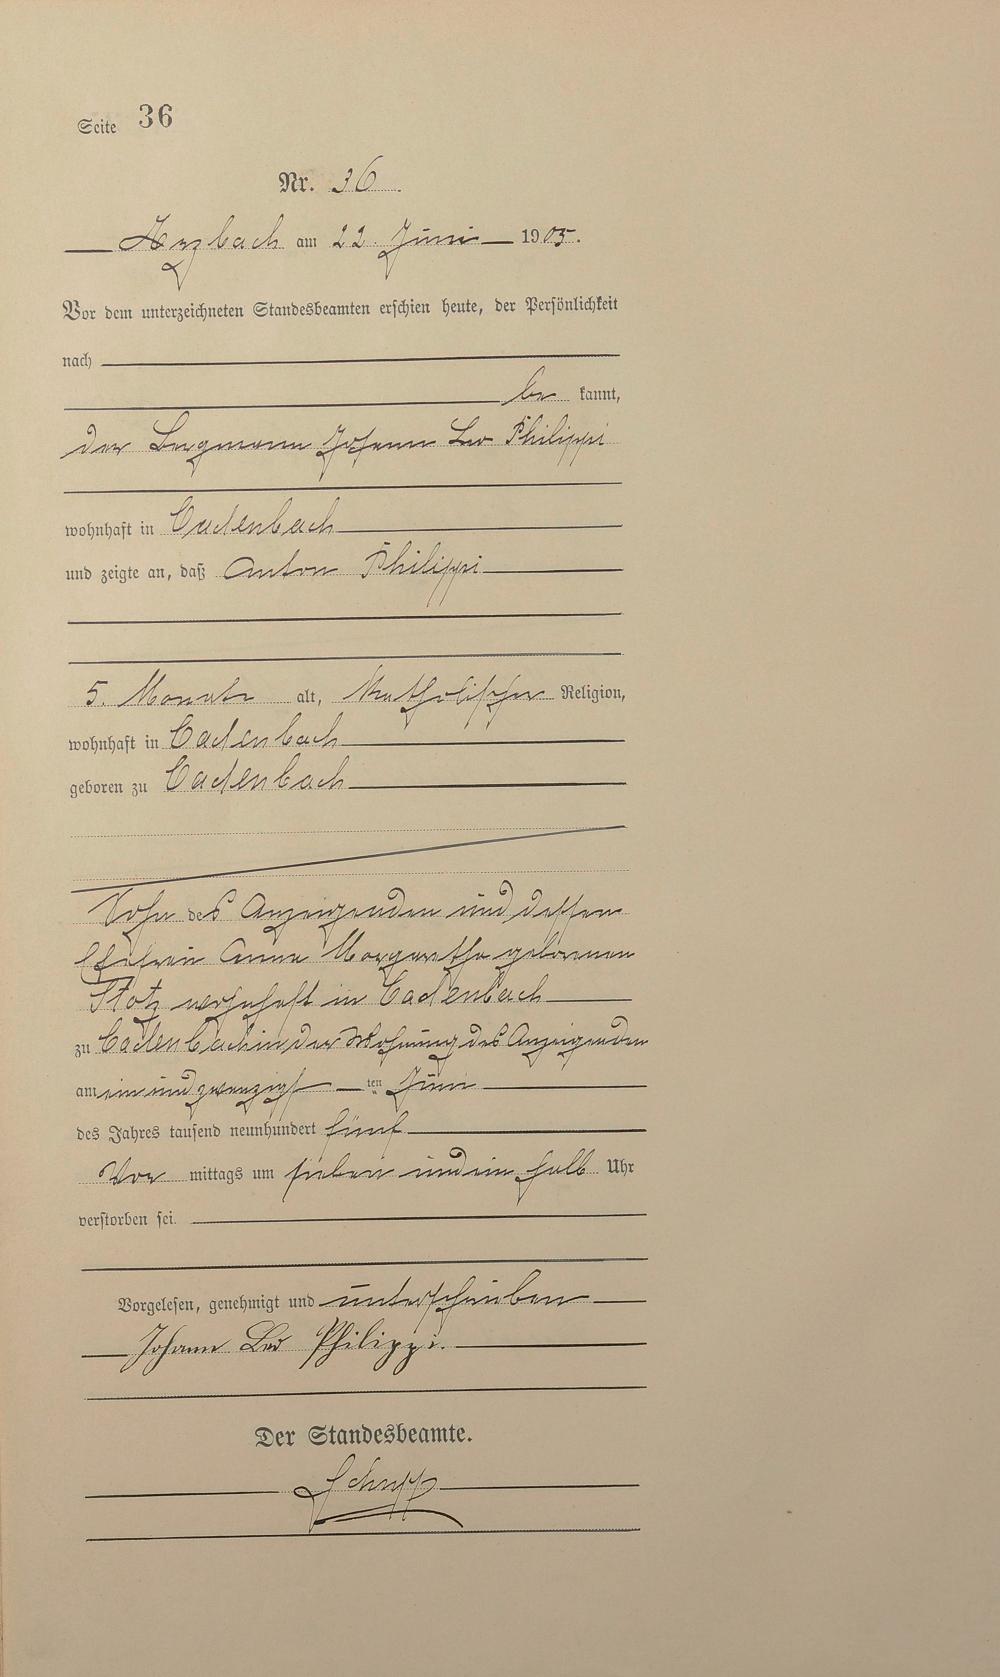 Seite 36
Nr. 36.
Arzbach am 22. Juni 1905.
Vor dem unterzeichneten Standesbeamten erschien heute, der Persönlichkeit
nach
be kannt,
der Bergmann Johann Leo Philippi
wohnhaft in Cadenbach
und zeigte an, daß Anton Philippi
5. Monate alt, katholischer Religion,
wohnhaft in Cadenbach
geboren zu Cadenbach
Sohn des Anzeigenden und dessen
Ehefrau Anna Margaretha geborenen
Stotz wohnhaft in Cadenbach
zu Cadenbach in der Wohnung des Anzeigenden
am ein und zwanzigsten Juni
des Jahres tausend neunhundert fünf
Vor mittags um sieben und ein halb Uhr
verstorben sei.
Vorgelesen, genehmigt und unterschrieben
Johann Leo Philippi.
Der Standesbeamte.